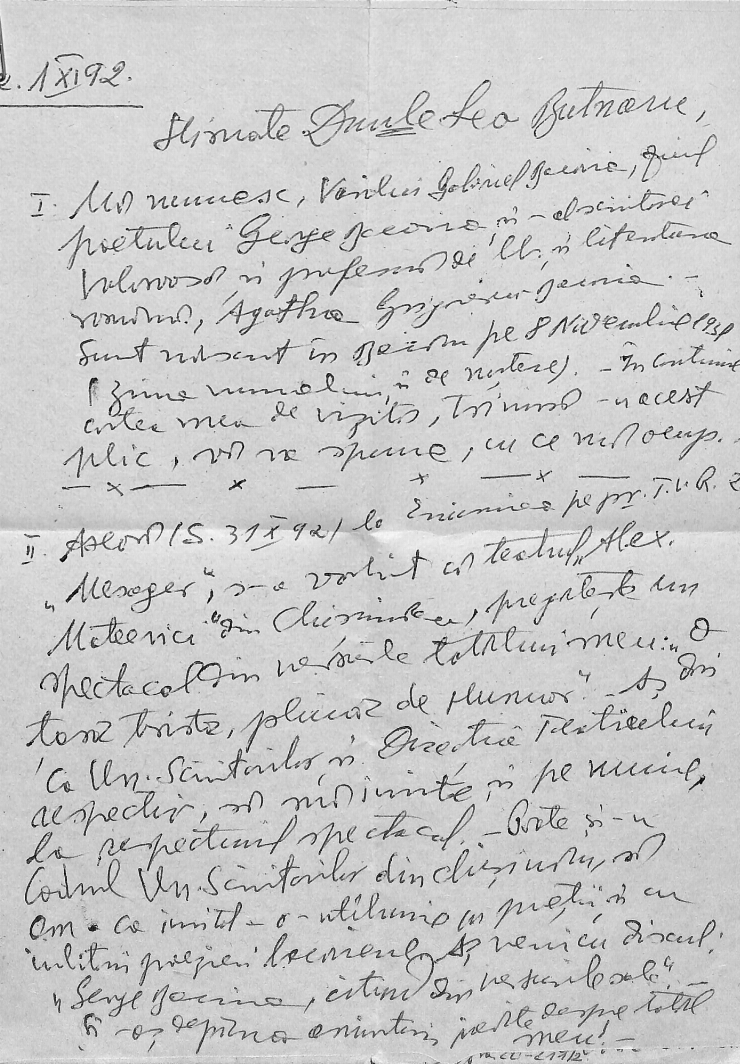 1 XI 92.
Stimate Dmule Leo Butnaru,
I. Mă numesc, Vasiliu Gabriel Bacovia, fiul
poetului George Bacovia și - al scriitoarei
valoroasă și profesoară de lb. și literatura
română, Agatha Grigorescu Bacovia. -
Sunt născut în Bacău pe 8 Noiembrie 1931
(ziua numelui, și de naștere). - În continuare
cartea mea de vizită, trimisă - n acest
plic, vă va spune, cu ce mă ocup.
— x — x — x — x —
II. Aseară (S. 31 X 92) la Emisiunea pe pr. T.V.R. 2
"Mesager", s-a vorbit că teatrul "Alex.
Mateevici" din Chișinău, pregătește un
spectacol din versurile tatălui meu: "O
țară tristă, plină de humor". - Aș dori
ca Un. Scriitorilor și Direcția Teatrului
respectiv, să mă invite și pe mine,
la respectivul spectacol. - Poate și-n
Cadrul Un. Scriitorilor din Chișinău, să
am - ca invitat - o - întâlnire cu poeții și cu
iubitorii poeziei bacoviene. Aș veni cu discul:
"George Bacovia, citind din versurile sale". -
Și - aș depăna amintiri inedite despre tatăl
meu! -